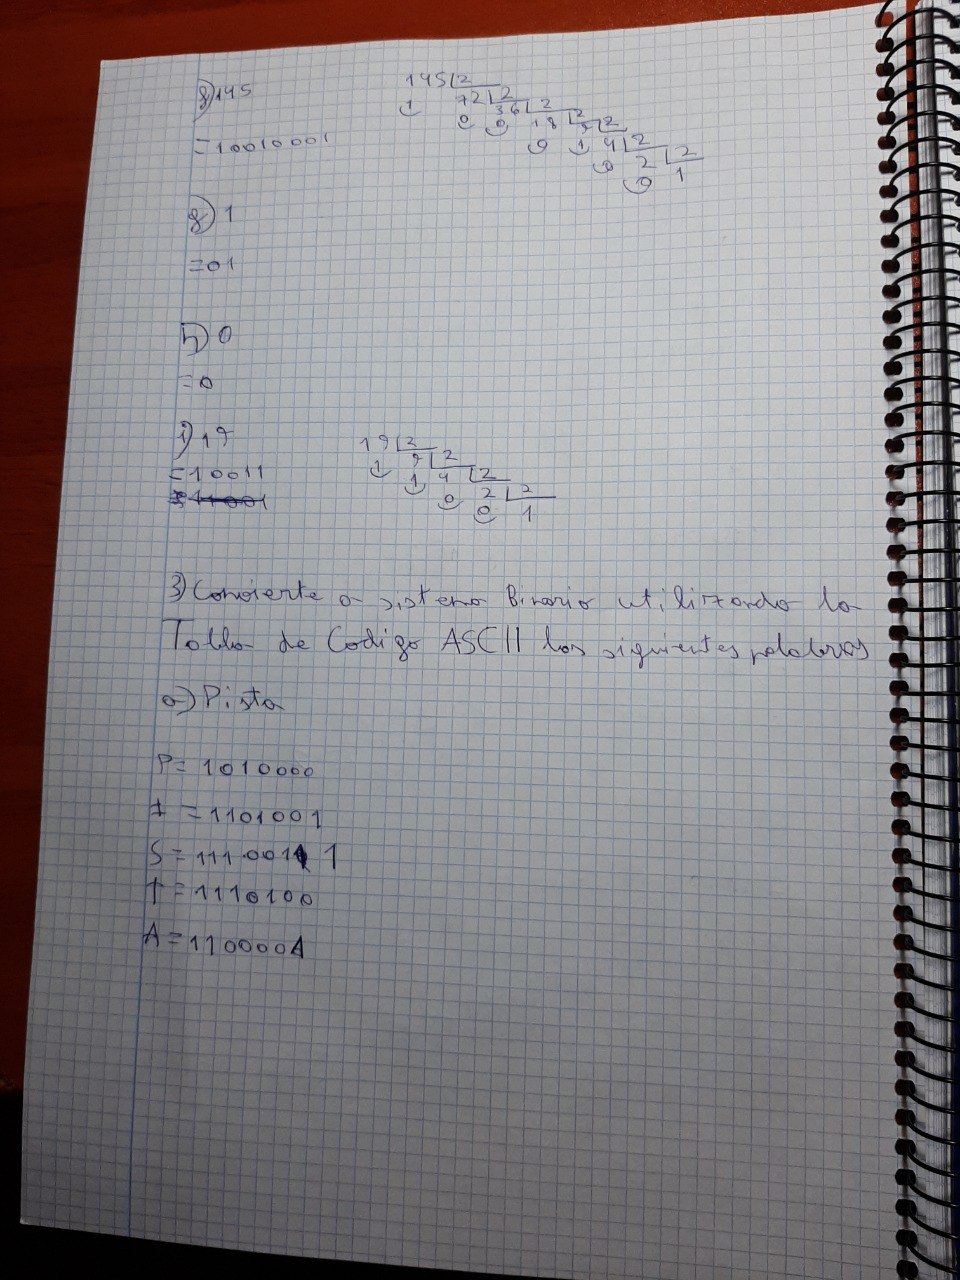 f) 145
= 10010001
145 2
1 72 2
0 36 2
0 18 2
0 9 2
1 4 2
0 2 2
0 1
g) 1
= 01
h) 0
= 0
i) 19
= 10011
19 2
1 9 2
1 4 2
0 2 2
0 1
3) Convierte a sistema Binario utilizando la
Tabla de Codigo ASCII las siguientes palabras
a) Pista
P = 1010000
I = 1101001
S = 1110011
T = 1110100
A = 1100001